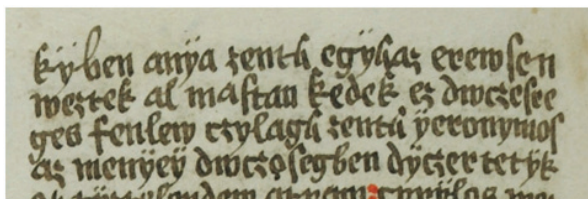 kÿben anÿa zentħ egÿhaz erewsen
weztek al mastan kedek ez dwczesse
ges fenlew czÿlagħ zentħ ÿeronÿmos
az menÿeÿ dwczosegben dÿczertetÿk